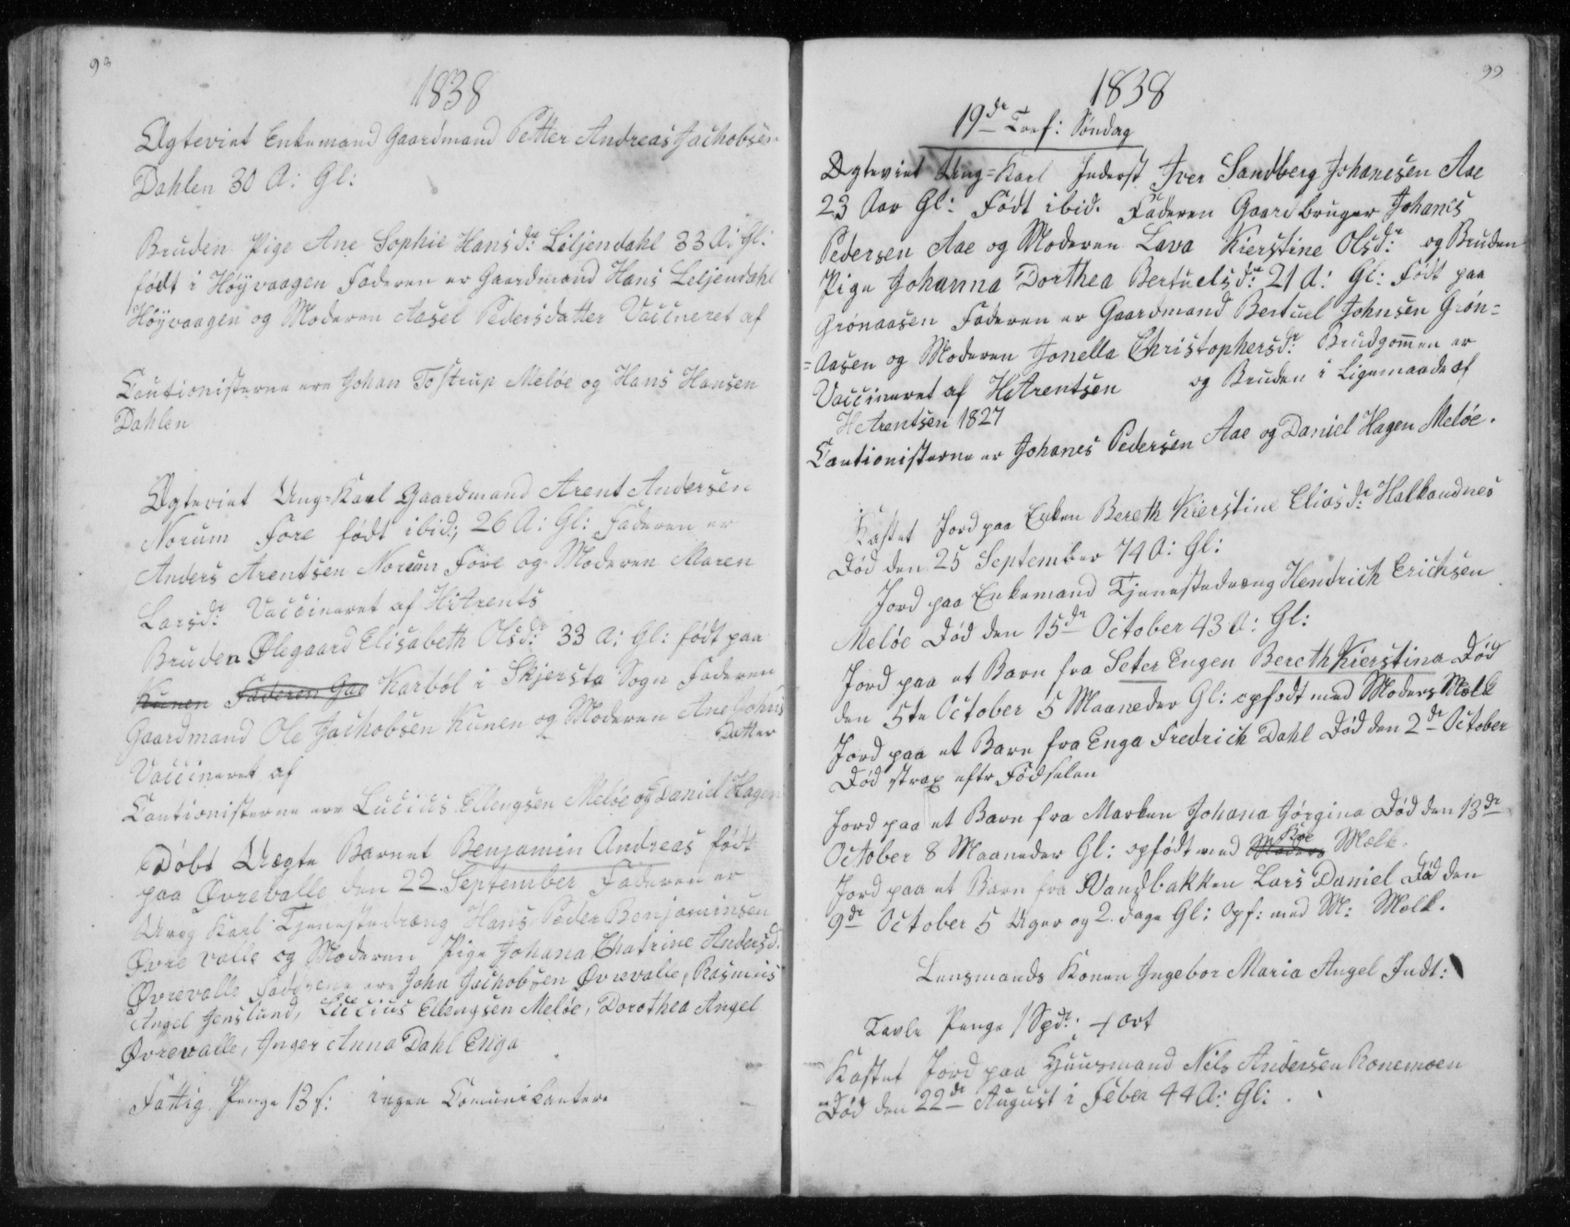 98
1838
Ægteviet Enkemand Gaardmand Petter Andreas Jachobsen
Dahlen 30 A: Gl:
Bruden Pige Ane Sophie Hansdr: Liljendahl 33 A: Gl:
født i Höyvaagen Faderen er Gaardmand Hans Leljendahl
Höyvaagen og Moderen Aasel Pedersdatter Vaccineret af
Cautionisterne ere Johan Tostrup Meløe og Hans Hansen
Dahlen
Ægteviet Ung-Karl Gaardmand Arent Andersen
Norum Fore født ibid: 26 A: Gl: Faderen er
Anders Arentsen Norum Fore og Moderen Maren
Larsdr: Vaccineret af H:Arents
Bruden Ølegaard Elisabeth Olsdr: 33 A: Gl: født paa
Kunen Faderen Gaa Karböl i Skjersta Sogn Faderen
Gaardmand Ole Jachobsen Kunen og Moderen Ane Johns
Datter
Vaccineret af
Cautionisterne ere Lucius Ellengsen Meløe og Daniel Hagen
Døbt Uægte Barnet Benjamin Andreas født
paa Øvrevalle den 22 September Faderen er
Ung Karl Tjenestedræng Hans Peder Benjaminsen
Øvre valle og Moderen Pige Johana Chatrine Andersd:
Øvrevalle Fadderne ere John Jachobsen Øvrevalle, Rasmus
Angel Jenslund, Lucius Ellengsen Meløe, Dorothea Angel
Øvrevalle, Inger Anna Dahl Enga
Fattig Penge 13 s: ingen Comunikantere
99
1838
19de Tref: Søndag
Ægteviet Ung=Karl Inderst Iver Sandberg Johanesen Aae
23 Aar Gl: Født ibid. Faderen Gaardbruger Johanes
Pedersen Aae og Moderen Lava Kierstine Olsdr: og Bruden
Pige Johanna Dorthea Bertuelsdr: 21 A: Gl: Født paa
Grönaasen Faderen er Gaardmand Bertuel Johnsen Grön=
=aasen og Moderen Jonella Christophersdr: Brudgommen er
Vaccineret af H:Arentsen og Bruden i Ligemaade af
H:Arentsen 1827
Cautionisterne er Johanes Pedersen Aae og Daniel Hagen Meløe.
Kastet Jord paa Enken Bereth Kierstine Eliasdr: Halkandnes
Død den 25 September 74 A: Gl:
Jord paa Enkemand Tjenestedræng Hendrich Erichsen
Meløe Død den 15de October 43 A: Gl:
Jord paa et Barn fra Seter Engen Bereth Kierstina Død
den 5te October 5 Maaneder Gl: opfødt med Moders Mælk
Jord paa et Barn fra Enga Fredrich Dahl Død den 2de October
Død strax efter Fødselen
Jord paa et Barn fra Marken Johana Jørgina Død den 13de
October 8 Maaneder Gl: opfødt med Moders Koe Mælk.
Jord paa et Barn fra Vandbakken Lars Daniel Død den
9de October 5 Uger og 2 dage Gl: Opf: med M: Mælk.
Lensmands Konen Ingebor Maria Angel Indt:
Tavle Penge 1 Spdr: 4 ort
Kastet Jord paa Huusmand Nils Andersen Ronemoen
Død den 22de August i Feber 44 A: Gl: